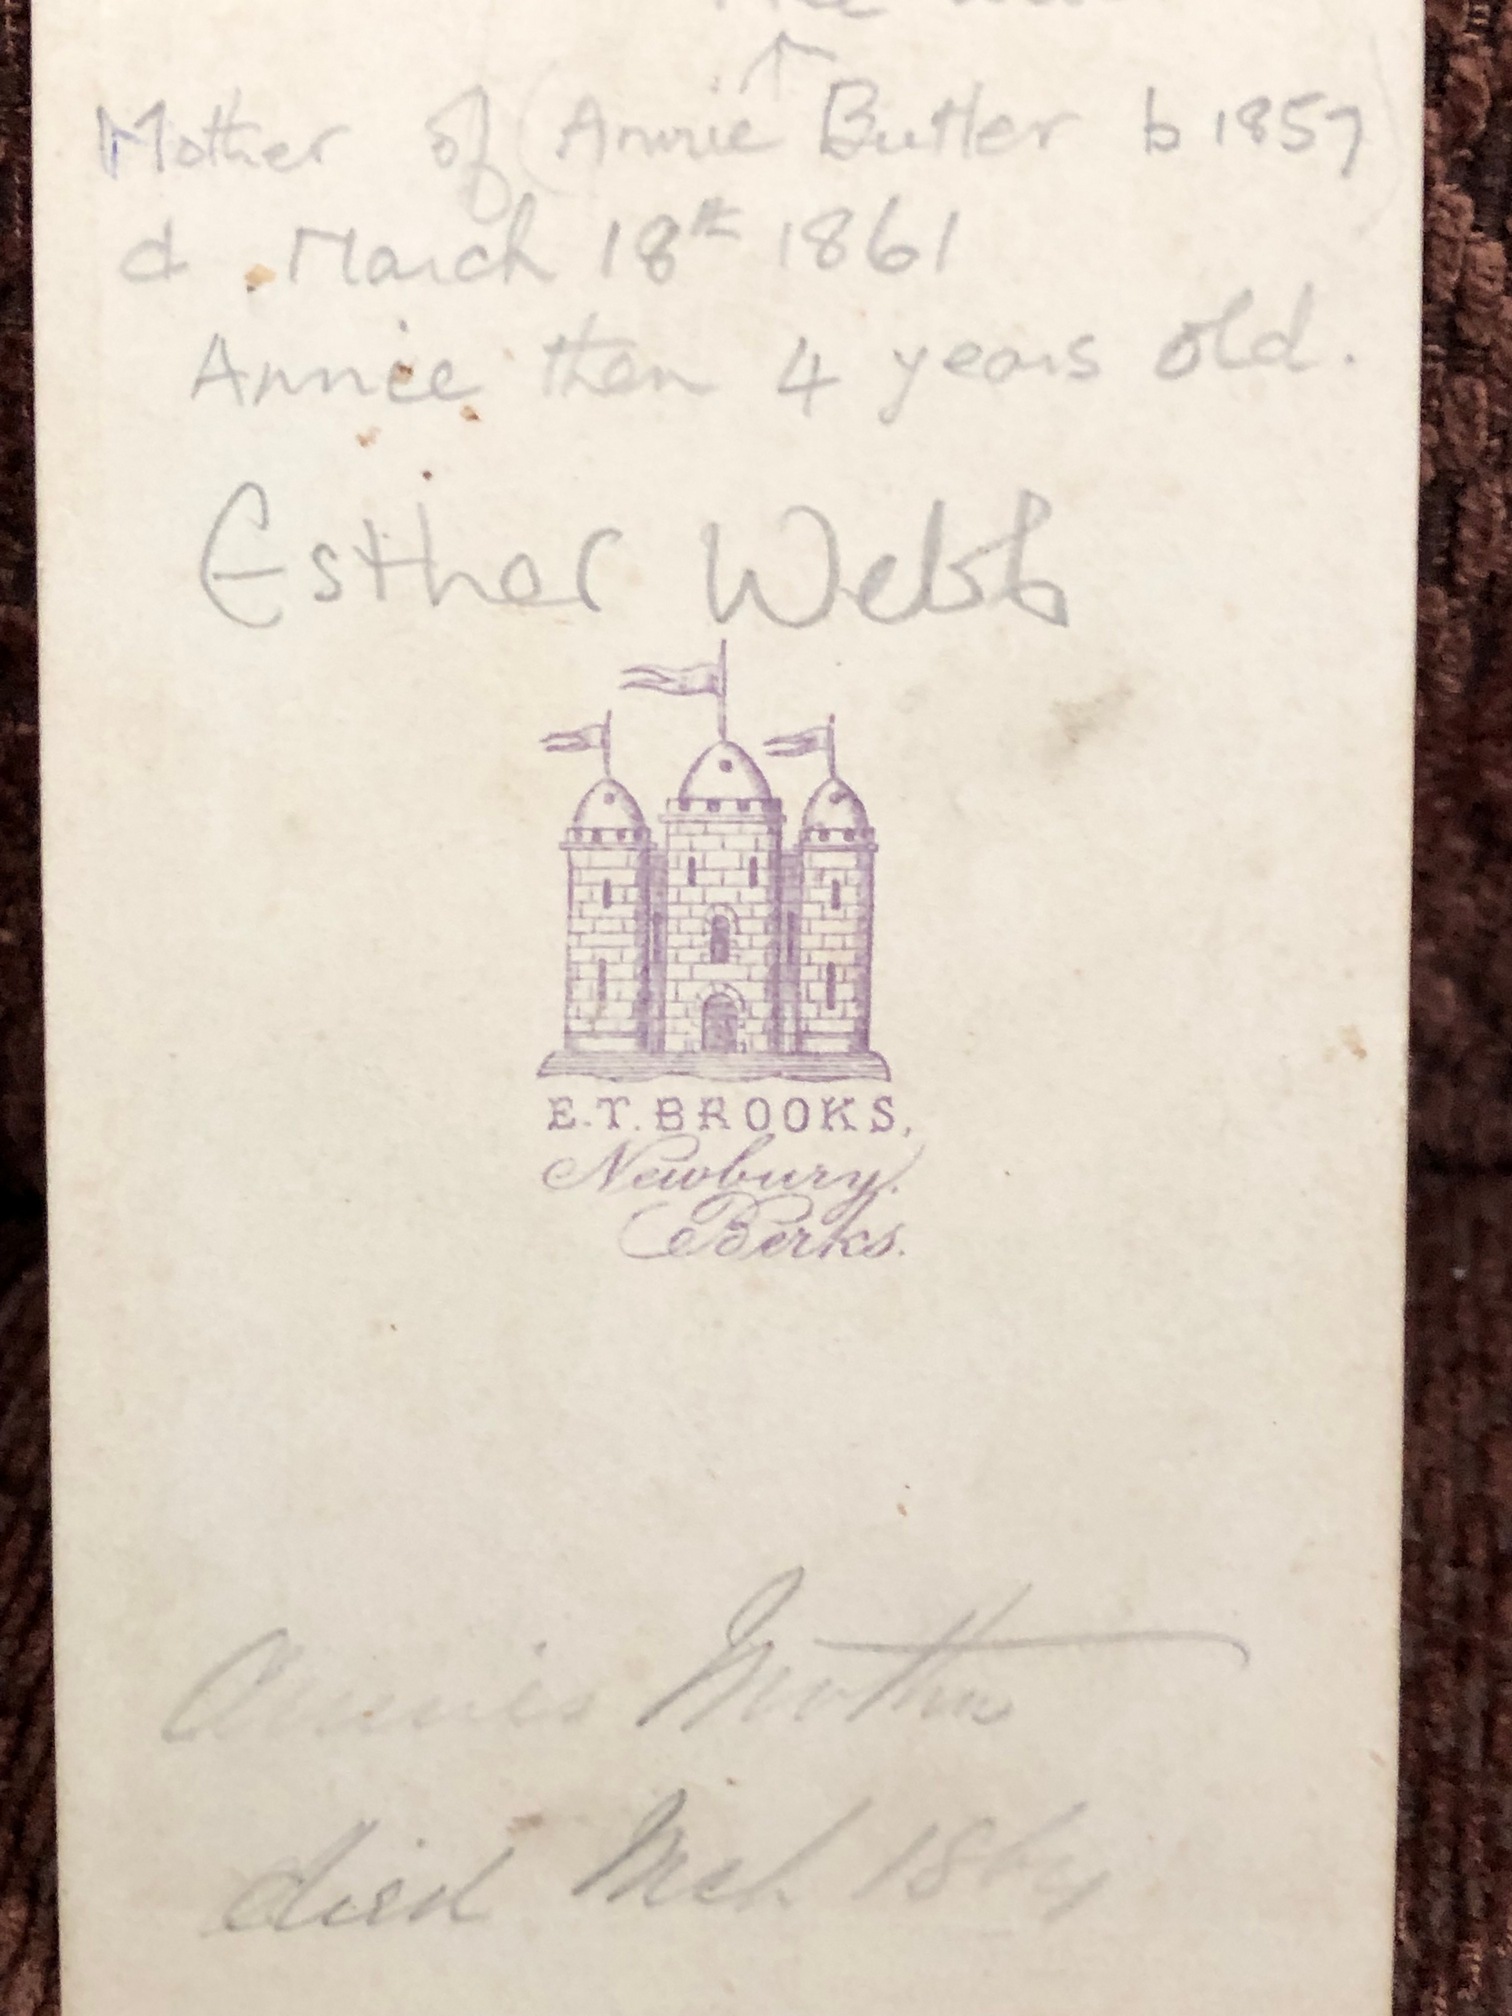 Mother of (Annie Butler b 1857)
d. March 18th 1861
Annie then 4 years old.
Esther Webb
E.T. BROOKS,
Newbury.
Berks.
Annies Mother
died Mch.